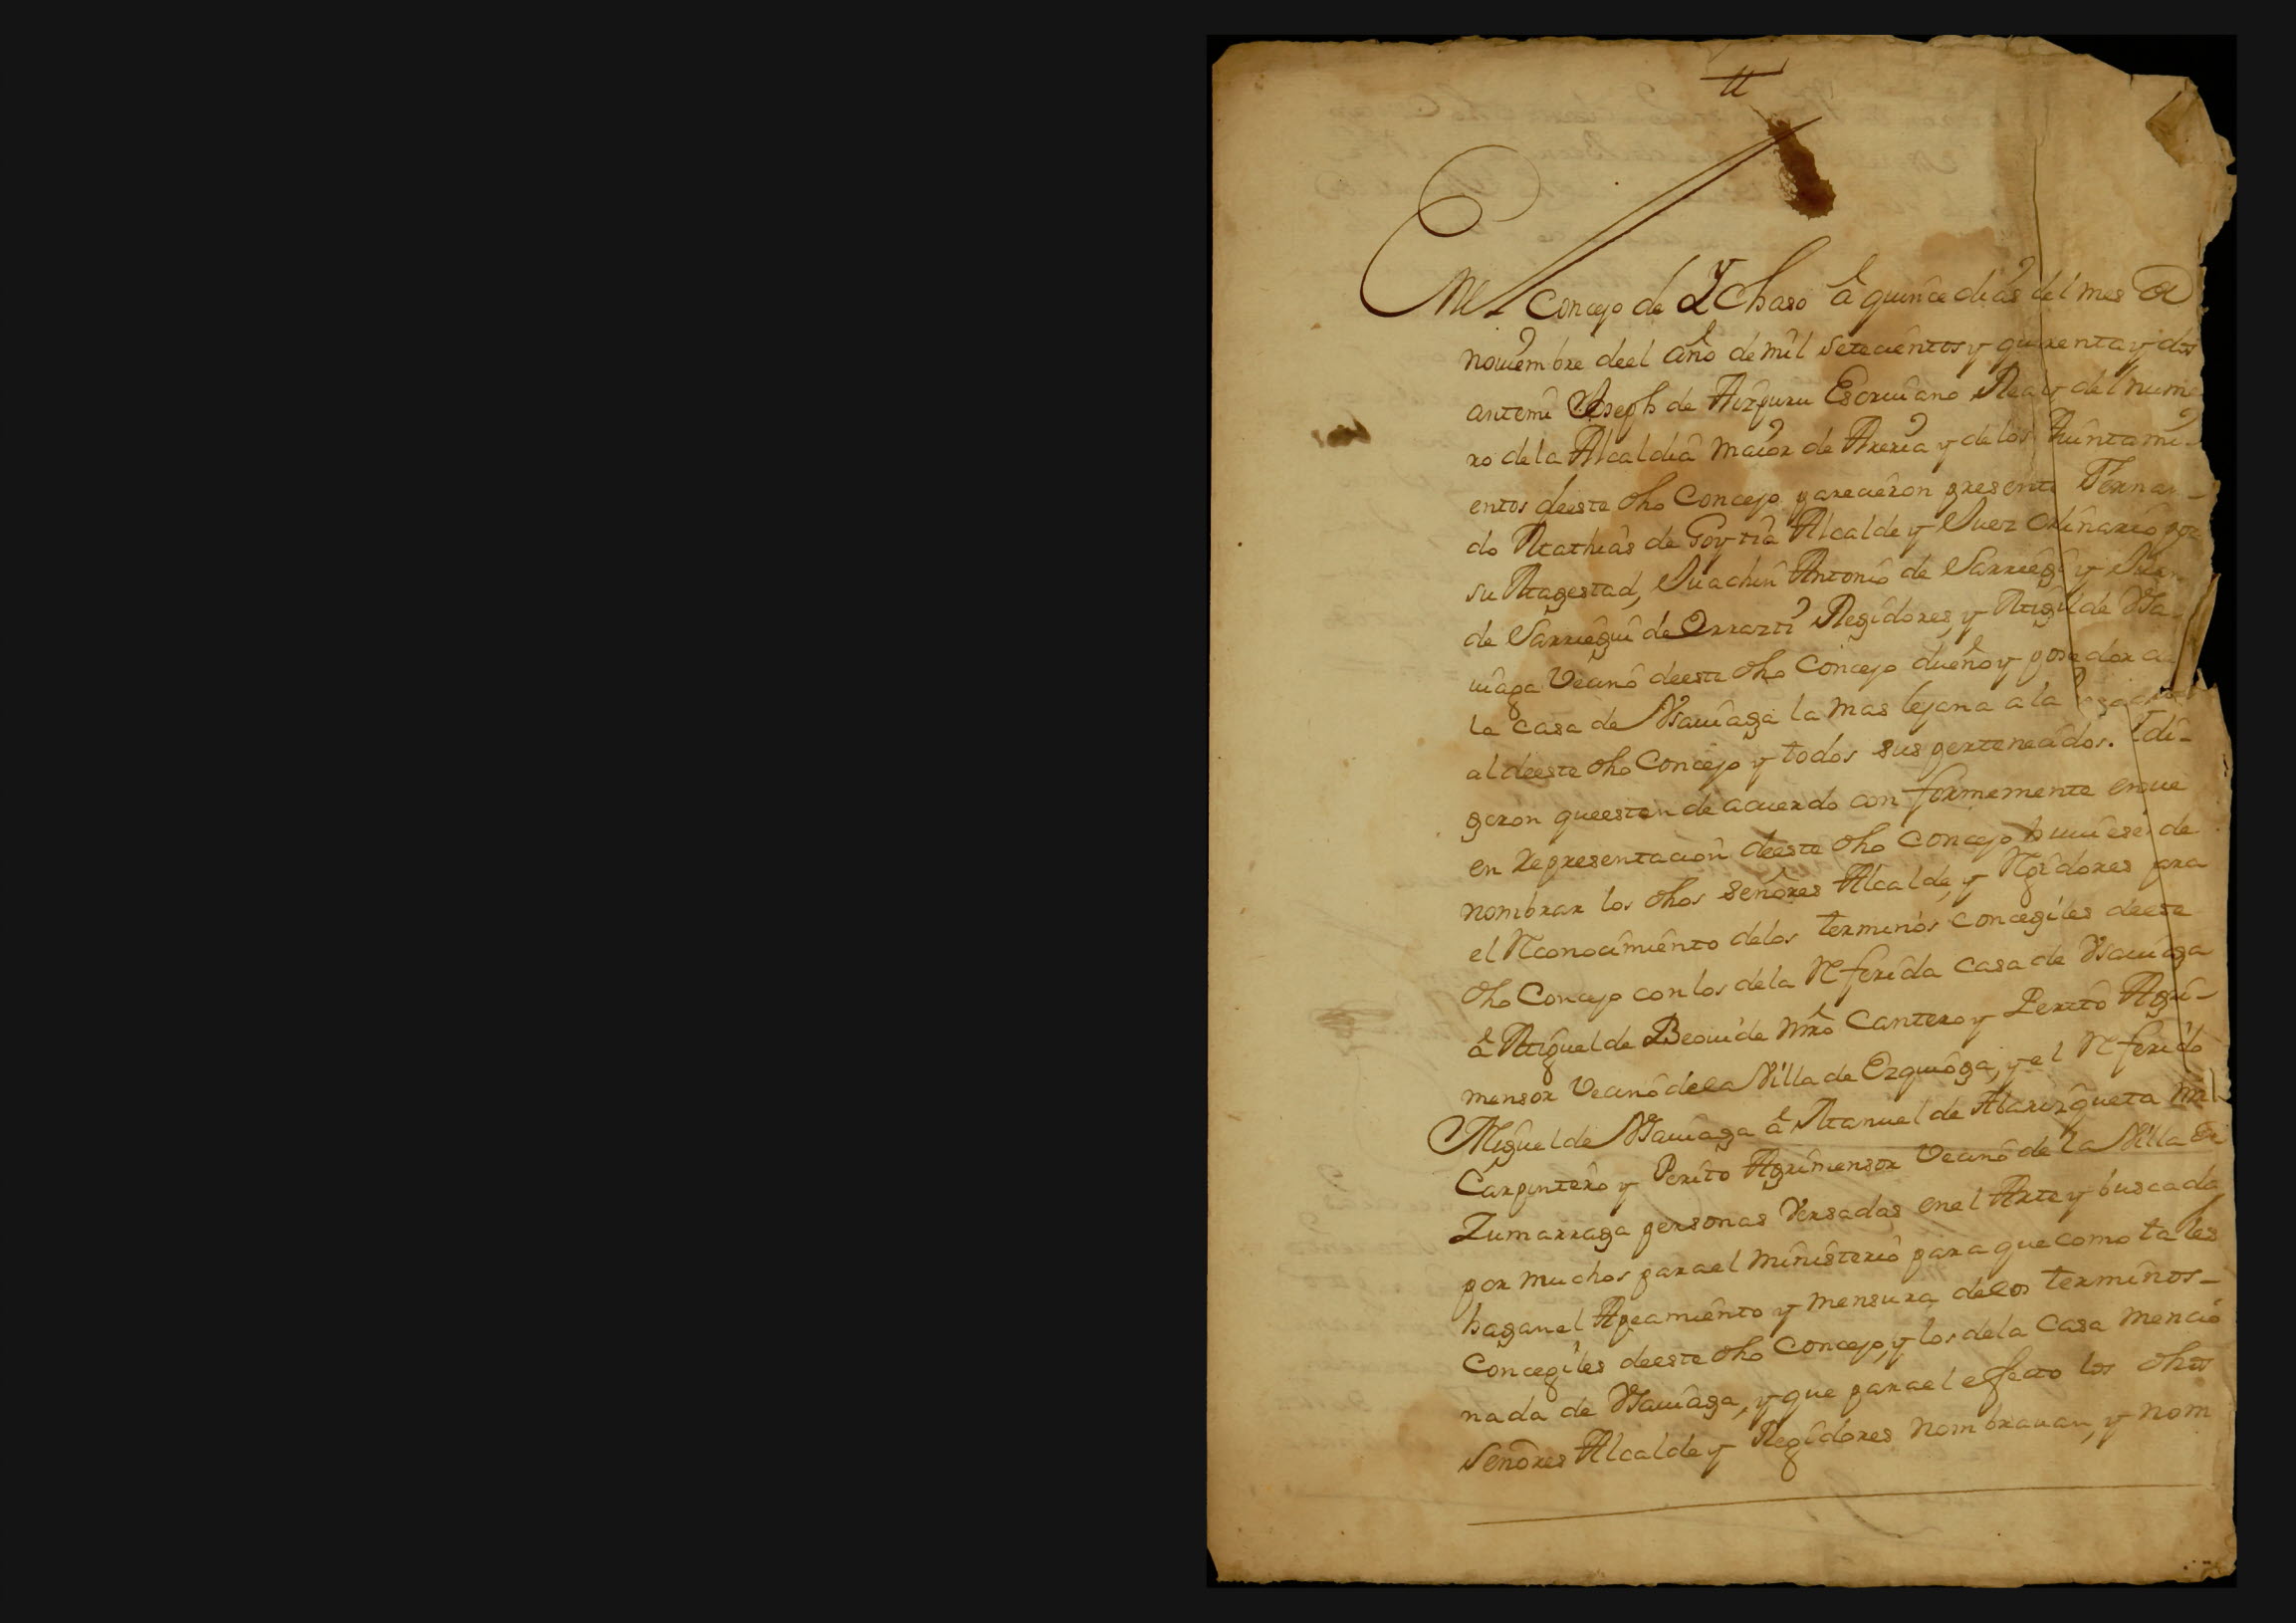 En el Concejo de Ychaso â quince dias del mes de
nouiembre deel año de mil setecientos y quarenta y dos
antemi Joseph de Aizpuru Escriuano Real y del nume
ro dela Alcaldia maior de Areria y de los Aiuntami-
entos deeste dho Concejo parecieron presente Fernan-
do Mathias de Goytia Alcalde y Juez Ordinario por
su Magestad, Juachin Antonio de Sarriegui y Juan
de Sarriegui de Orrazti Regidores, y Migl de Vsa-
uiaga Vecino deeste dho Concejo dueño y poseedor de
la casa de Vsauiaga la mas lejana a la
al deeste dho Concejo y todos sus pertenecidos. Edi-
geron queestan de acuerdo con formemente enque
en representacion deeste dho Concejo huuiesen de
nombrar los dhos señores Alcalde, y Rgidores para
el Rconocimiento delos terminos concegiles deeste
dho Concejo con los dela Rferida casa de Vsauiaga
â Miguel de Beouide Mro Cantero y Perito Agri-
mensor Vecino dela Villa de Ezquioga, y el Rferido
Miguel de Vsauiaga â Manuel de Alarizgueta Mro
Carpintero y Perito Agrimensor Vecino de la Villa de
Zumarraga personas Versadas enel Arte y buscadas
por muchos parael ministerio para que como tales
haganel Apeamiento y mensura delos terminos-
Concegiles deeste dho Concejo, y los dela Casa mencio
nada de Vsauiaga, y que parael effecto los dhos
Señores Alcalde y Regidores nombrauan, y nom